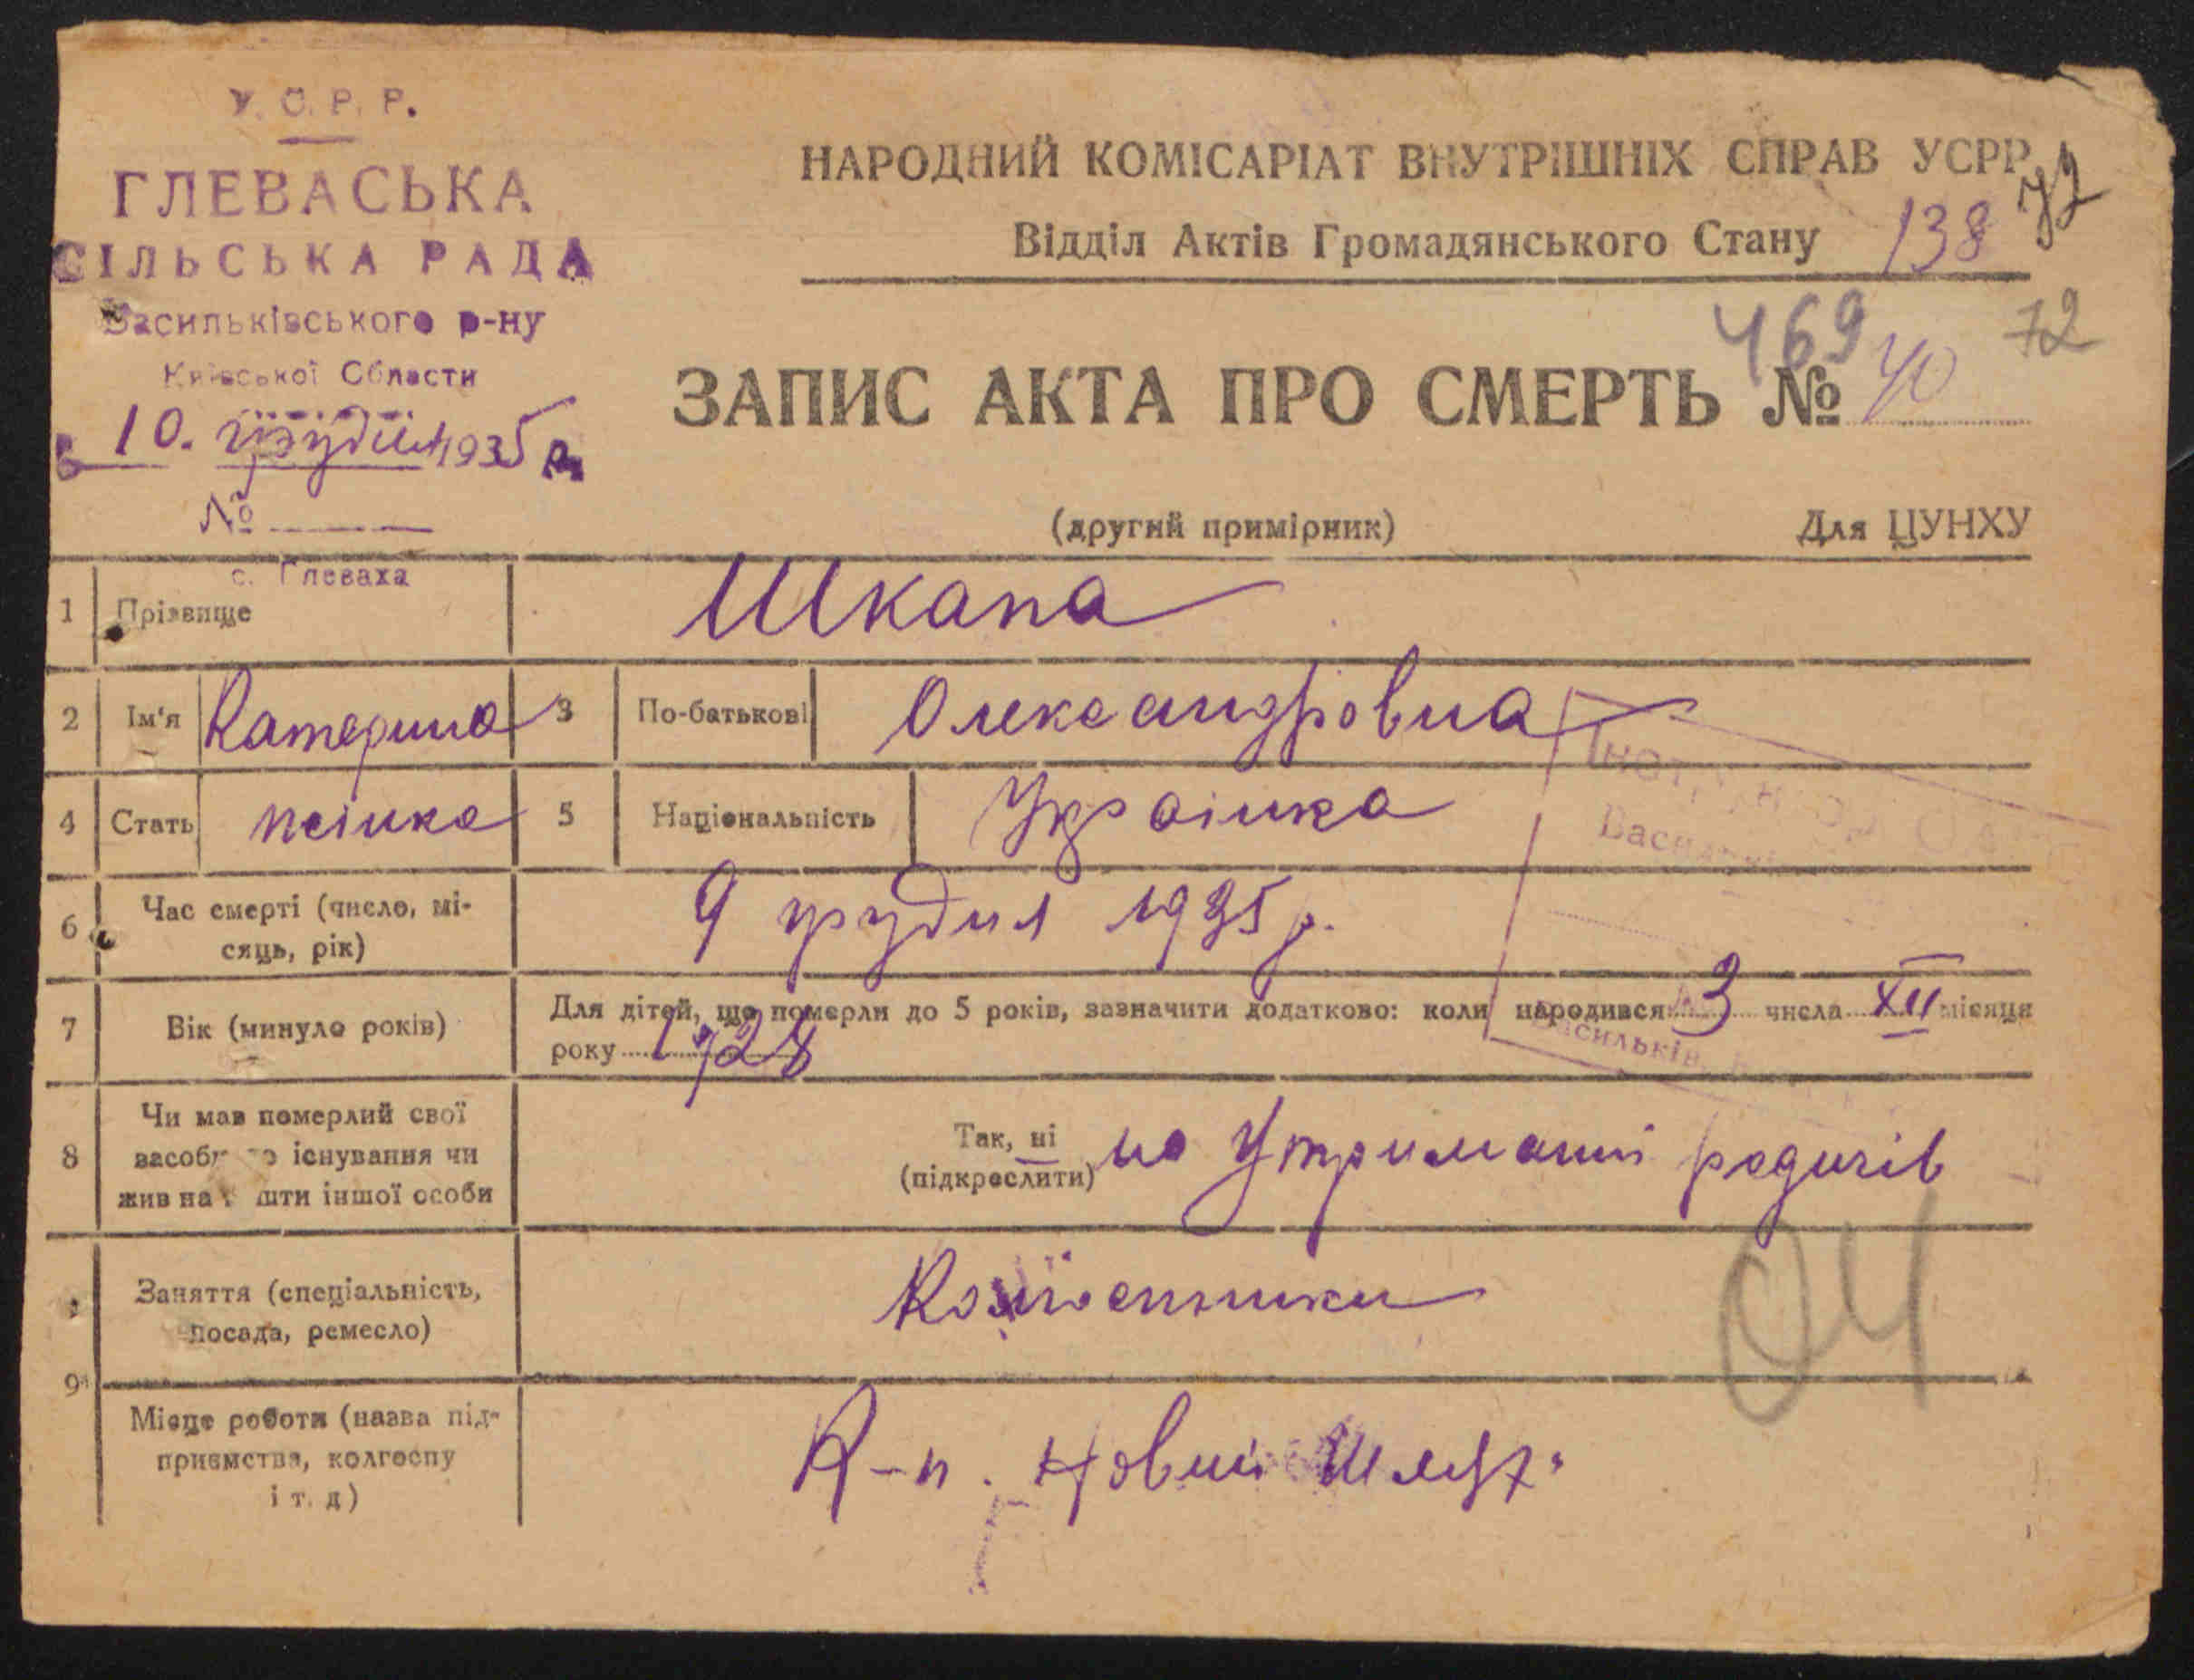 У.С.Р.Р.
ГЛЕВАСЬКА
СІЛЬСЬКА РАДА
Васильківського р-ну
Київської Области
10. грудня 1935 р.
№
с. Глеваха
НАРОДНИЙ КОМІСАРІАТ ВНУТРІШНІХ СПРАВ УСРР
72
Відділ Актів Громадянського Стану 138
469 72
ЗАПИС АКТА ПРО СМЕРТЬ № 40
(другий примірник) Для ЦУНХУ
1 Прізвище Шкапа
2 Ім'я Катерина 3 По-батькові Олександровна
4 Стать жінка 5 Національність Українка
Васильків
6 Час смерті (число, мі-
сяць, рік) 9 грудня 1935 р.
7 Вік (минуло років) Для дітей, що померли до 5 років, зазначити додатково: коли народився 3 числа XII місяця
року 1928
Васильків
8 Чи мав померлий свої
засоби до існування чи
жив на кошти іншої особи
Так, ні
(підкреслити) на Утриманні родичів
Заняття (спеціальність,
посада, ремесло)
04
9 Місце роботи (назва під-
приємства, колгоспу
і т. д) К-п. Новий Шлях